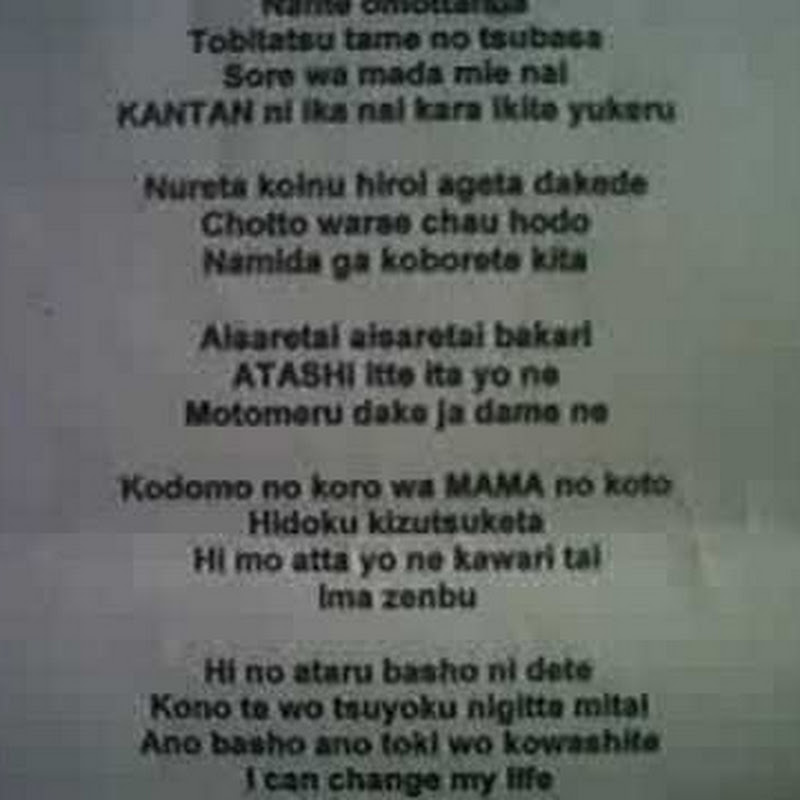 Tobitatsu tame no tsubasa
Sore wa mada mie nai
KANTAN ni ika nai kara ikite yukeru
Nureta koinu hiroi ageta dakede
Chotto warae chau hodo
Namida ga koborete kita
Aisaretai aisaretai bakari
ATASHI itte ita yo ne
Motomeru dake ja dame ne
Kodomo no koro wa MAMA no koto
Hidoku kizutsuketa
Hi mo atta yo ne kawari tai
Ima zenbu
Hi no ataru basho ni dete
Kono te wo tsuyoku nigitte mitai
Ano basho ano toki wo kowashite
I can change my life